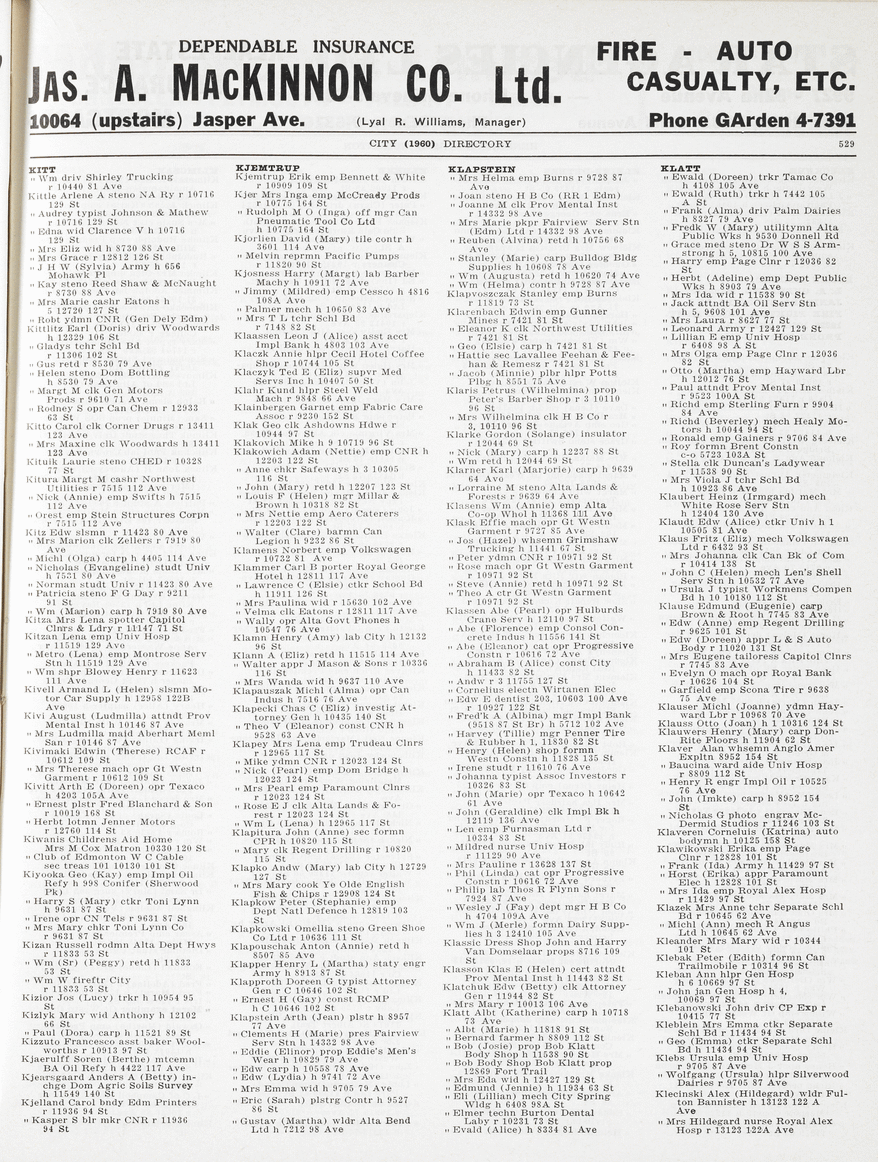 DEPENDABLE INSURANCE
JAS. A. MACKINNON CO. Ltd.
10064 (upstairs) Jasper Ave.
(Lyal R. Williams, Manager)
FIRE - AUTO
CASUALTY, ETC.
Phone GArden 4-7391
CITY (1960) DIRECTORY
529
KITT
" Wm driv Shirley Trucking
r 10440 81 Ave
Kittle Arlene A steno NA Ry r 10716
129 St
" Audrey typist Johnson & Mathew
r 10716 129 St
" Edna wid Clarence V h 10716
129 St
" Mrs Eliz wid h 8730 88 Ave
" Mrs Grace r 12812 126 St
" J H W (Sylvia) Army h 656
Mohawk Pl
" Kay steno Reed Shaw & McNaught
r 8730 88 Ave
" Mrs Marie cashr Eatons h
5 12720 127 St
" Robt ydmn CNR (Gen Dely Edm)
Kittlitz Earl (Doris) driv Woodwards
h 12329 106 St
" Gladys tchr Schl Bd
r 11306 102 St
" Gus retd r 8530 79 Ave
" Helen steno Dom Bottling
h 8530 79 Ave
" Margt M clk Gen Motors
Prods r 9610 71 Ave
" Rodney S opr Can Chem r 12933
63 St
Kitto Carol clk Corner Drugs r 13411
123 Ave
" Mrs Maxine clk Woodwards h 13411
123 Ave
Kituik Laurie steno CHED r 10328
77 St
Kitura Margt M cashr Northwest
Utilities r 7515 112 Ave
" Nick (Annie) emp Swifts h 7515
112 Ave
" Orest emp Stein Structures Corpn
r 7515 112 Ave
Kitz Edw slsmn r 11423 80 Ave
" Mrs Marion clk Zellers r 7919 80
Ave
" Michl (Olga) carp h 4405 114 Ave
" Nicholas (Evangeline) studt Univ
h 7531 80 Ave
" Norman studt Univ r 11423 80 Ave
" Patricia steno F G Day r 9211
91 St
" Wm (Marion) carp h 7919 80 Ave
Kitza Mrs Lena spotter Capitol
Clnrs & Ldry r 11147 71 St
Kitzan Lena emp Univ Hosp
r 11519 129 Ave
" Metro (Lena) emp Montrose Serv
Stn h 11519 129 Ave
" Wm shpr Blowey Henry r 11623
111 Ave
Kivell Armand L (Helen) slsmn Mo-
tor Car Supply h 12958 122B
Ave
Kivi August (Ludmilla) attndt Prov
Mental Inst h 10146 87 Ave
" Mrs Ludmilla maid Aberhart Meml
San r 10146 87 Ave
Kivimaki Edwin (Therese) RCAF r
10612 109 St
" Mrs Therese mach opr Gt Westn
Garment r 10612 109 St
Kivitt Arth E (Doreen) opr Texaco
h 4203 105A Ave
" Ernest plstr Fred Blanchard & Son
r 10019 168 St
" Herbt lotmn Jenner Motors
r 12760 114 St
Kiwanis Childrens Aid Home
Mrs M Cox Matron 10330 120 St
" Club of Edmonton W C Cable
sec treas 101 10130 101 St
Kiyooka Geo (Kay) emp Impl Oil
Refy h 998 Conifer (Sherwood
Pk)
" Harry S (Mary) ctkr Toni Lynn
h 9631 87 St
" Irene opr CN Tels r 9631 87 St
" Mrs Mary chkr Toni Lynn Co
r 9631 87 St
Kizan Russell rodmn Alta Dept Hwys
r 11833 53 St
" Wm (Sr) (Peggy) retd h 11833
53 St
" Wm W fireftr City
r 11833 53 St
Kizior Jos (Lucy) trkr h 10954 95
St
Kizlyk Mary wid Anthony h 12102
66 St
" Paul (Dora) carp h 11521 89 St
Kizzuto Francesco asst baker Wool-
worths r 10913 97 St
Kjaerulff Soren (Berthe) mtcemn
BA Oil Refy h 4422 117 Ave
Kjearsgaard Anders A (Betty) in-
chge Dom Agric Soils Survey
h 11549 140 St
Kjelland Carol bndy Edm Printers
r 11936 94 St
" Kasper S blr mkr CNR r 11936
94 St
KJEMTRUP
Kjemtrup Erik emp Bennett & White
r 10909 109 St
Kjer Mrs Inga emp McCready Prods
r 10775 164 St
" Rudolph M O (Inga) off mgr Can
Pneumatic Tool Co Ltd
h 10775 164 St
Kjorlien David (Mary) tile contr h
3601 114 Ave
" Melvin reprmn Pacific Pumps
r 11820 90 St
Kjosness Harry (Margt) lab Barber
Machy h 10911 72 Ave
" Jimmy (Mildred) emp Cessco h 4816
108A Ave
" Palmer mech h 10650 83 Ave
" Mrs T L tchr Schl Bd
r 7148 82 St
Klaassen Leon J (Alice) asst acct
Impl Bank h 4803 103 Ave
Klaczk Annie hlpr Cecil Hotel Coffee
Shop r 10744 105 St
Klaczyk Ted E (Eliz) supvr Med
Servs Inc h 10407 50 St
Klahr Kund hlpr Steel Weld
Mach r 9848 66 Ave
Klainbergen Garnet emp Fabric Care
Assoc r 9230 152 St
Klak Geo clk Ashdowns Hdwe r
10944 97 St
Klakovich Mike h 9 10719 96 St
Klakowich Adam (Nettie) emp CNR h
12203 122 St
" Anne chkr Safeways h 3 10305
116 St
" John (Mary) retd h 12207 123 St
" Louis F (Helen) mgr Millar &
Brown h 10318 82 St
" Mrs Nettie emp Aero Caterers
r 12203 122 St
" Walter (Clare) barmn Can
Legion h 9232 86 St
Klamens Norbert emp Volkswagen
r 10732 81 Ave
Klammer Carl B porter Royal George
Hotel h 12811 117 Ave
" Lawrence C (Elsie) ctkr School Bd
h 11911 126 St
" Mrs Paulina wid r 15630 102 Ave
" Velma clk Eatons r 12811 117 Ave
" Wally opr Alta Govt Phones h
10547 76 Ave
Klamn Henry (Amy) lab City h 12132
96 St
Klann A (Eliz) retd h 11515 114 Ave
" Walter appr J Mason & Sons r 10336
116 St
" Mrs Wanda wid h 9637 110 Ave
Klapauszak Michl (Alma) opr Can
Indus h 7516 76 Ave
Klapecki Chas C (Eliz) investig At-
torney Gen h 10435 140 St
" Theo V (Eleanor) const CNR h
9528 63 Ave
Klapey Mrs Lena emp Trudeau Clnrs
r 12965 117 St
" Mike ydmn CNR r 12023 124 St
" Nick (Pearl) emp Dom Bridge h
12023 124 St
" Mrs Pearl emp Paramount Clnrs
r 12023 124 St
" Rose E J clk Alta Lands & Fo-
rest r 12023 124 St
" Wm L (Lena) h 12965 117 St
Klapitura John (Anne) sec formn
CPR h 10820 115 St
" Mary clk Regent Drilling r 10820
115 St
Klapko Andw (Mary) lab City h 12729
127 St
" Mrs Mary cook Ye Olde English
Fish & Chips r 12908 124 St
Klapkow Peter (Stephanie) emp
Dept Natl Defence h 12819 103
St
Klapkowski Omellia steno Green Shoe
Co Ltd r 10636 111 St
Klapouschak Anton (Annie) retd h
8507 85 Ave
Klapper Henry L (Martha) staty engr
Army h 8913 87 St
Klapproth Doreen G typist Attorney
Gen r C 10646 102 St
" Ernest H (Gay) const RCMP
h C 10646 102 St
Klapstein Arth (Jean) plstr h 8957
77 Ave
" Clements H (Marie) pres Fairview
Serv Stn h 14332 98 Ave
" Eddie (Elinor) prop Eddie's Men's
Wear h 10829 79 Ave
" Edw carp h 10558 78 Ave
" Edw (Lydia) h 9741 72 Ave
" Mrs Emma wid h 9705 79 Ave
" Eric (Sarah) plstrg Contr h 9527
86 St
" Gustav (Martha) wldr Alta Bend
Ltd h 7212 98 Ave
KLAPSTEIN
" Mrs Helma emp Burns r 9728 87
Ave
" Joan steno H B Co (RR 1 Edm)
" Joanne M clk Prov Mental Inst
r 14332 98 Ave
" Mrs Marie pkpr Fairview Serv Stn
(Edm) Ltd r 14332 98 Ave
" Reuben (Alvina) retd h 10756 68
Ave
" Stanley (Marie) carp Bulldog Bldg
Supplies h 10608 78 Ave
" Wm (Augusta) retd h 10620 74 Ave
" Wm (Helma) contr h 9728 87 Ave
Klapvoszczak Stanley emp Burns
r 11819 73 St
Klarenbach Edwin emp Gunner
Mines r 7421 81 St
" Eleanor K clk Northwest Utilities
r 7421 81 St
" Geo (Elsie) carp h 7421 81 St
" Hattie sec Lavallee Feehan & Fee-
han & Remesz r 7421 81 St
" Jacob (Minnie) plbr hlpr Potts
Plbg h 8551 75 Ave
Klaris Petrus (Wilhelmina) prop
Peter's Barber Shop r 3 10110
96 St
" Mrs Wilhelmina clk H B Co r
3, 10110 96 St
Klarke Gordon (Solange) insulator
r 12044 69 St
" Nick (Mary) carp h 12237 88 St
" Wm retd h 12044 69 St
Klarner Karl (Marjorie) carp h 9639
64 Ave
" Lorraine M steno Alta Lands &
Forests r 9639 64 Ave
Klasens Wm (Annie) emp Alta
Co-op Whol h 11368 111 Ave
Klask Effie mach opr Gt Westn
Garment r 9727 85 Ave
" Jos (Hazel) whsemn Grimshaw
Trucking h 11441 67 St
" Peter ydmn CNR r 10971 92 St
" Rose mach opr Gt Westn Garment
r 10971 92 St
" Steve (Annie) retd h 10971 92 St
" Theo A ctr Gt Westn Garment
r 10971 92 St
Klassen Abe (Pearl) opr Hulburds
Crane Serv h 12110 97 St
" Abe (Florence) emp Consol Con-
crete Indus h 11556 141 St
" Abe (Eleanor) cat opr Progressive
Constn r 10616 72 Ave
" Abraham B (Alice) const City
h 11433 82 St
" Andw r 3 11755 127 St
" Cornelius electn Wirtanen Elec
" Edw E dentist 203, 10603 100 Ave
r 10927 122 St
" Fred'k A (Albina) mgr Impl Bank
(9518 87 St Br) h 5712 102 Ave
" Harvey (Tillie) mgr Penner Tire
& Rubber h 1, 11830 82 St
" Henry (Helen) shop formn
Westn Constn h 11828 135 St
" Irene studt r 11610 76 Ave
" Johanna typist Assoc Investors r
10326 83 St
" John (Marie) opr Texaco h 10642
61 Ave
" John (Geraldine) clk Impl Bk h
12119 136 Ave
" Len emp Furnasman Ltd r
10334 83 St
" Mildred nurse Univ Hosp
r 11129 90 Ave
" Mrs Pauline r 13628 137 St
" Phil (Linda) cat opr Progressive
Constn r 10616 72 Ave
" Philip lab Thos R Flynn Sons r
7924 87 Ave
" Wesley J (Fay) dept mgr H B Co
h 4704 109A Ave
" Wm J (Merle) formn Dairy Supp-
lies h 3 12410 105 Ave
Klassic Dress Shop John and Harry
Van Domselaar props 8716 109
St
Klasson Klas E (Helen) cert attndt
Prov Mental Inst h 11443 82 St
Klatchuk Edw (Betty) clk Attorney
Gen r 11944 82 St
" Mrs Mary r 10013 106 Ave
Klatt Albt (Katherine) carp h 10718
73 Ave
" Albt (Marie) h 11818 91 St
" Bernard farmer h 8809 112 St
" Bob (Josie) prop Bob Klatt
Body Shop h 11538 90 St
" Bob Body Shop Bob Klatt prop
12869 Fort Trail
" Mrs Eda wid h 12427 129 St
" Edmund (Jennie) h 11934 63 St
" Eli (Lillian) mech City Spring
Wldg h 6408 98A St
" Elmer techn Burton Dental
Laby r 10231 73 St
" Evald (Alice) h 8334 81 Ave
KLATT
" Ewald (Doreen) trkr Tamac Co
h 4108 105 Ave
" Ewald (Ruth) trkr h 7442 105
A St
" Frank (Alma) driv Palm Dairies
h 8327 79 Ave
" Fredk W (Mary) utilitymn Alta
Public Wks h 9530 Donnell Rd
" Grace med steno Dr W S S Arm-
strong h 5, 10815 100 Ave
" Harry emp Page Clnr r 12036 82
St
" Herbt (Adeline) emp Dept Public
Wks h 8903 79 Ave
" Mrs Ida wid r 11538 90 St
" Jack attndt BA Oil Serv Stn
h 5, 9608 101 Ave
" Mrs Laura r 8627 77 St
" Leonard Army r 12427 129 St
" Lillian E emp Univ Hosp
r 6408 98 A St
" Mrs Olga emp Page Clnr r 12036
82 St
" Otto (Martha) emp Hayward Lbr
h 12012 76 St
" Paul attndt Prov Mental Inst
r 9523 100A St
" Richd emp Sterling Furn r 9904
84 Ave
" Richd (Beverley) mech Healy Mo-
tors h 10044 94 St
" Ronald emp Gainers r 9706 84 Ave
" Roy formn Brent Constn
c-o 5723 103A St
" Stella clk Duncan's Ladywear
r 11538 90 St
" Mrs Viola J tchr Schl Bd
h 10923 86 Ave
Klaubert Heinz (Irmgard) mech
White Rose Serv Stn
h 12404 130 Ave
Klaudt Edw (Alice) ctkr Univ h 1
10505 81 Ave
Klaus Fritz (Eliz) mech Volkswagen
Ltd r 6432 93 St
" Mrs Johanna clk Can Bk of Com
r 10414 138 St
" John C (Helen) mech Len's Shell
Serv Stn h 10532 77 Ave
" Ursula J typist Workmens Compen
Bd h 10 10180 112 St
Klause Edmund (Eugenie) carp
Brown & Root h 7745 83 Ave
" Edw (Anne) emp Regent Drilling
r 9625 101 St
" Edw (Doreen) appr L & S Auto
Body r 11020 131 St
" Mrs Eugene tailoress Capitol Clnrs
r 7745 83 Ave
" Evelyn O mach opr Royal Bank
r 10626 104 St
" Garfield emp Scona Tire r 9638
75 Ave
Klauser Michl (Joanne) ydmn Hay-
ward Lbr r 10968 70 Ave
Klauss Otto (Joan) h 1 10316 124 St
Klauwers Henry (Mary) carp Don-
Rite Floors h 11904 62 St
Klaver Alan whsemn Anglo Amer
Expltn 8952 154 St
" Baucina ward aide Univ Hosp
r 8809 112 St
" Henry R engr Impl Oil r 10525
76 Ave
" John (Imkte) carp h 8952 154
St
" Nicholas G photo engrav Mc-
Dermid Studios r 11246 103 St
Klaveren Corneluis (Katrina) auto
bodymn h 10125 158 St
Klawikowski Erika emp Page
Clnr r 12828 101 St
" Frank (Ida) Army h 11429 97 St
" Horst (Erika) appr Paramount
Elec h 12828 101 St
" Mrs Ida emp Royal Alex Hosp
r 11429 97 St
Klazek Mrs Anne tchr Separate Schl
Bd r 10645 62 Ave
" Michl (Ann) mech R Angus
Ltd h 10645 62 Ave
Kleander Mrs Mary wid r 10344
101 St
Klebak Peter (Edith) formn Can
Trailmobile r 10314 96 St
Kleban Ann hlpr Gen Hosp
h 6 10669 97 St
" John jan Gen Hosp h 4,
10069 97 St
Klebanowski John driv CP Exp r
10415 77 St
Kleblein Mrs Emma ctkr Separate
Schl Bd r 11434 94 St
" Geo (Emma) ctkr Separate Schl
Bd h 11434 94 St
Klebs Ursula emp Univ Hosp
r 9705 87 Ave
" Wolfgang (Ursula) hlpr Silverwood
Dairies r 9705 87 Ave
Klecinski Alex (Hildegard) wldr Ful-
ton Bannister h 13123 122 A
Ave
" Mrs Hildegard nurse Royal Alex
Hosp r 13123 122A Ave